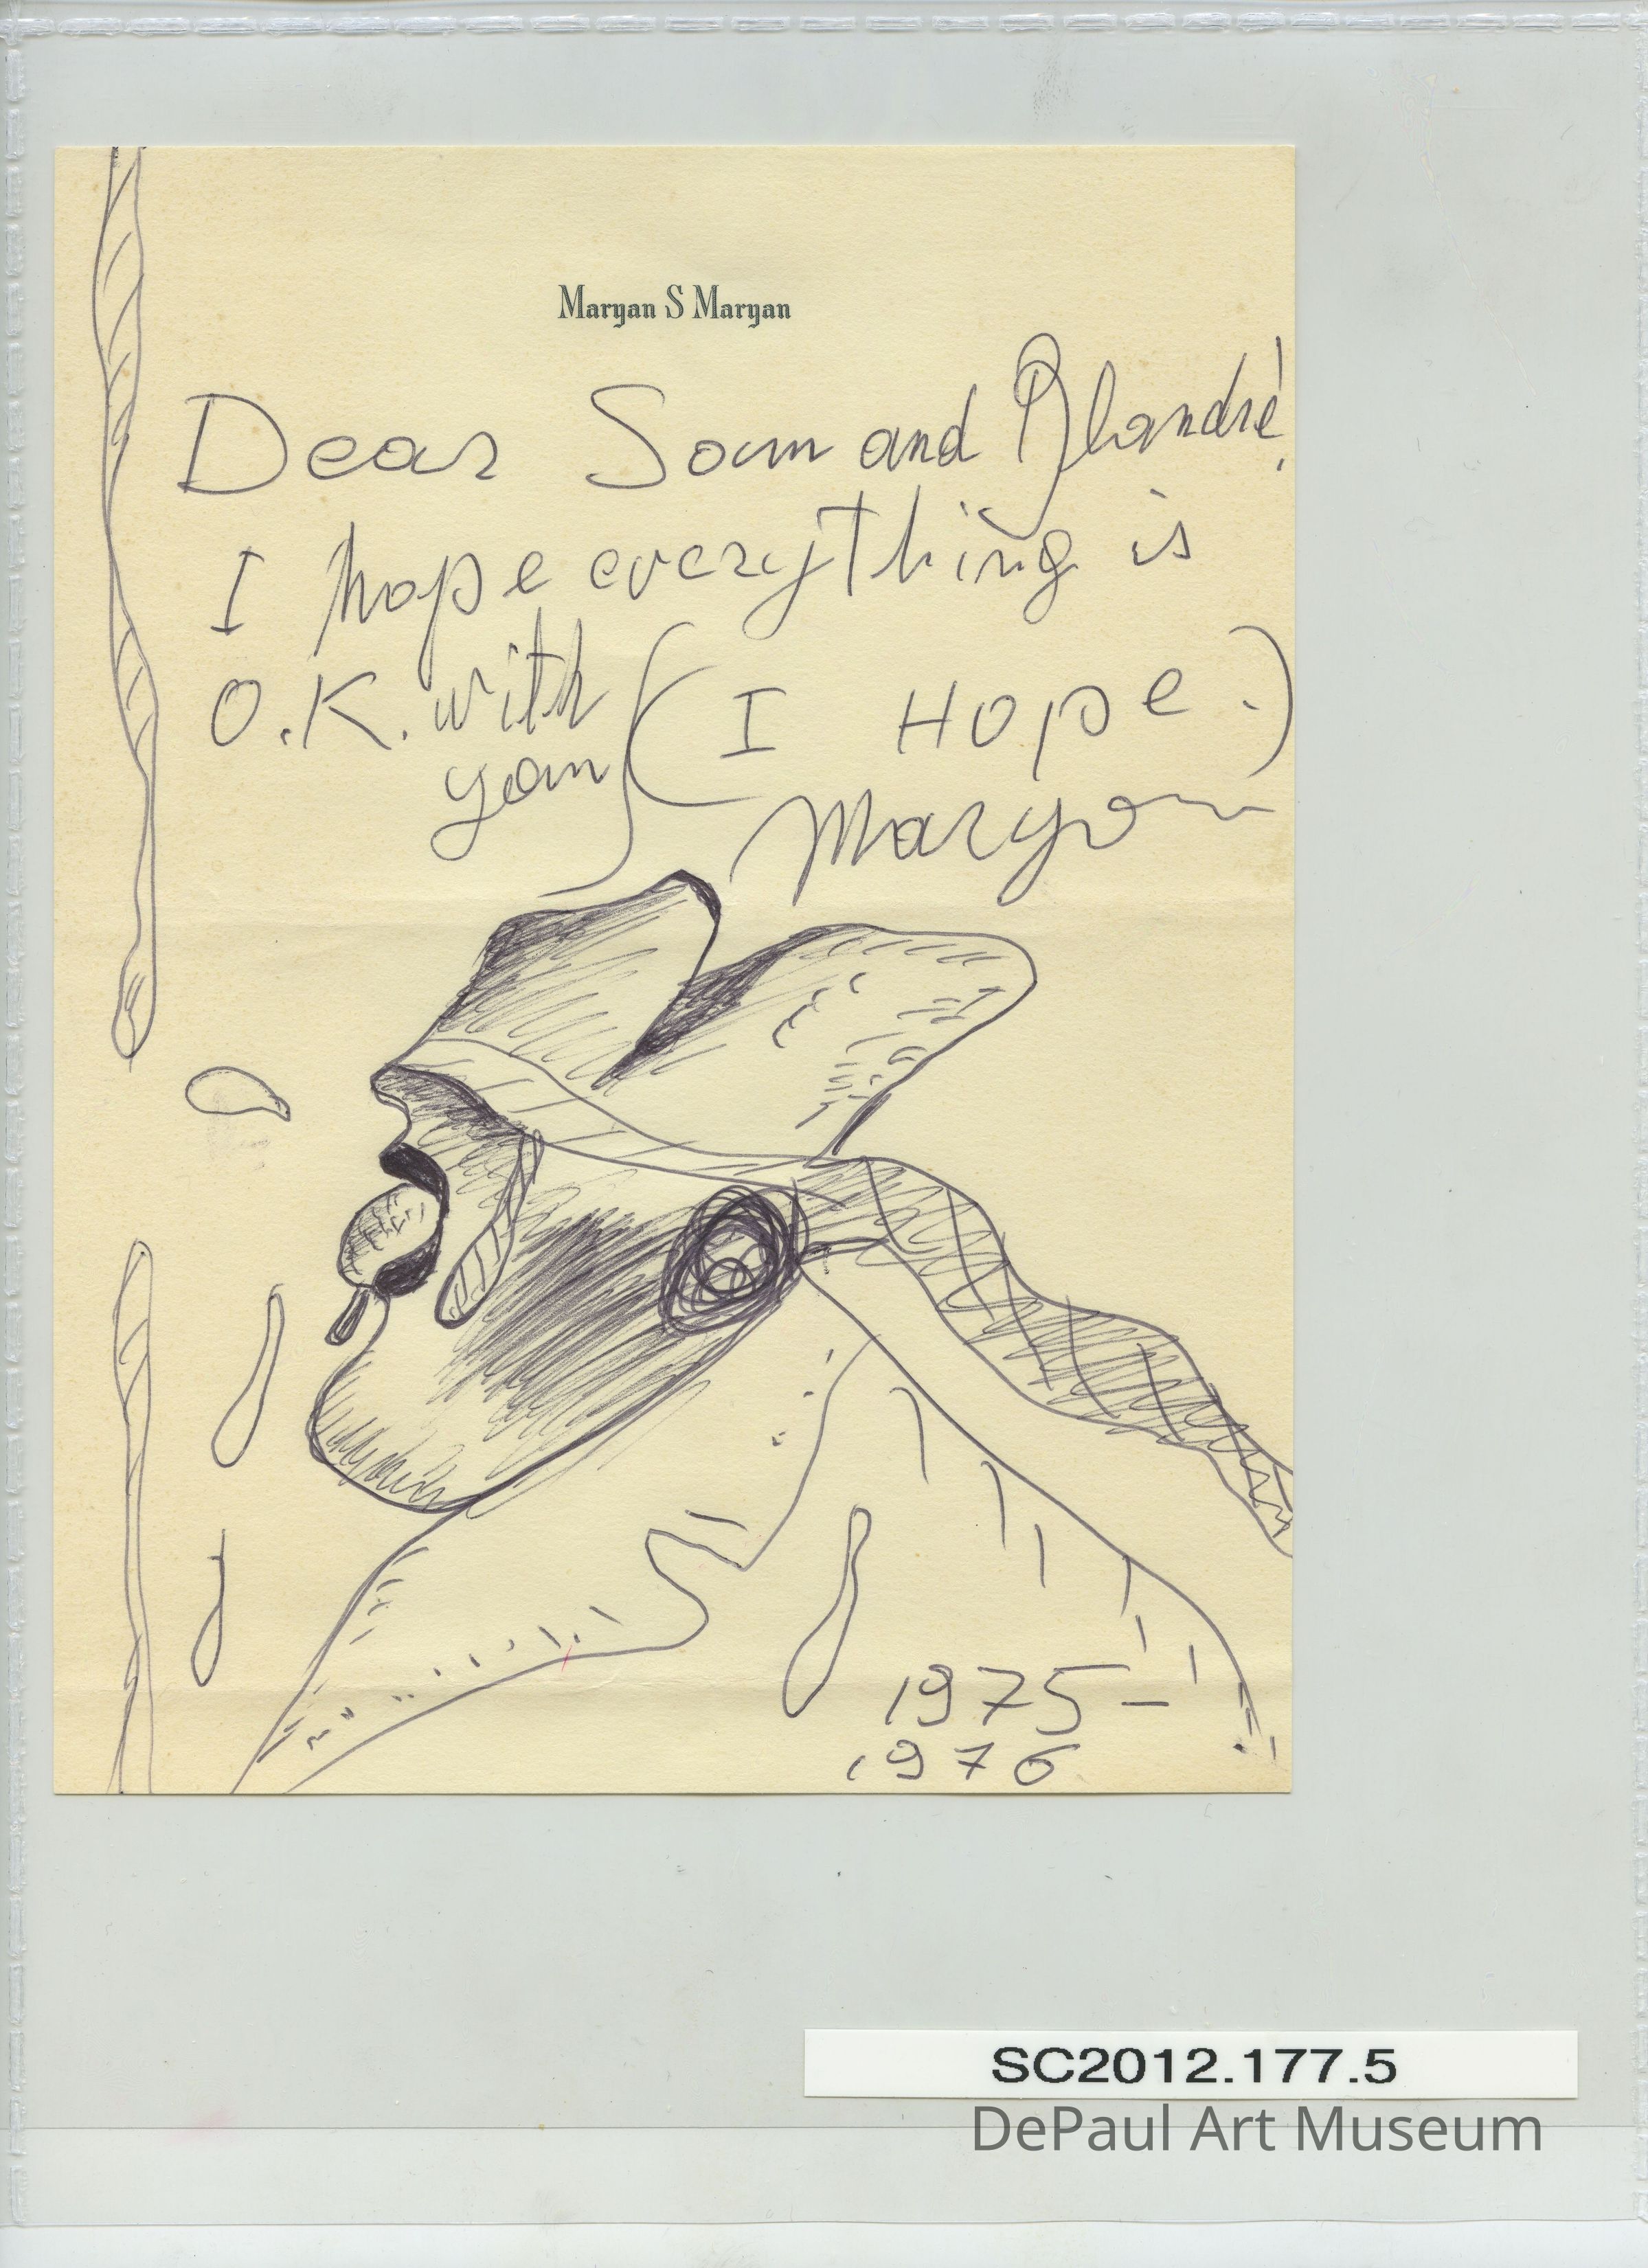 Maryan S Maryan
Dear Sam and Blandié!
I hope everything is
O.K. with (I HOPE.)
you
Maryan
1975–
1976
SC2012.177.5
DePaul Art Museum